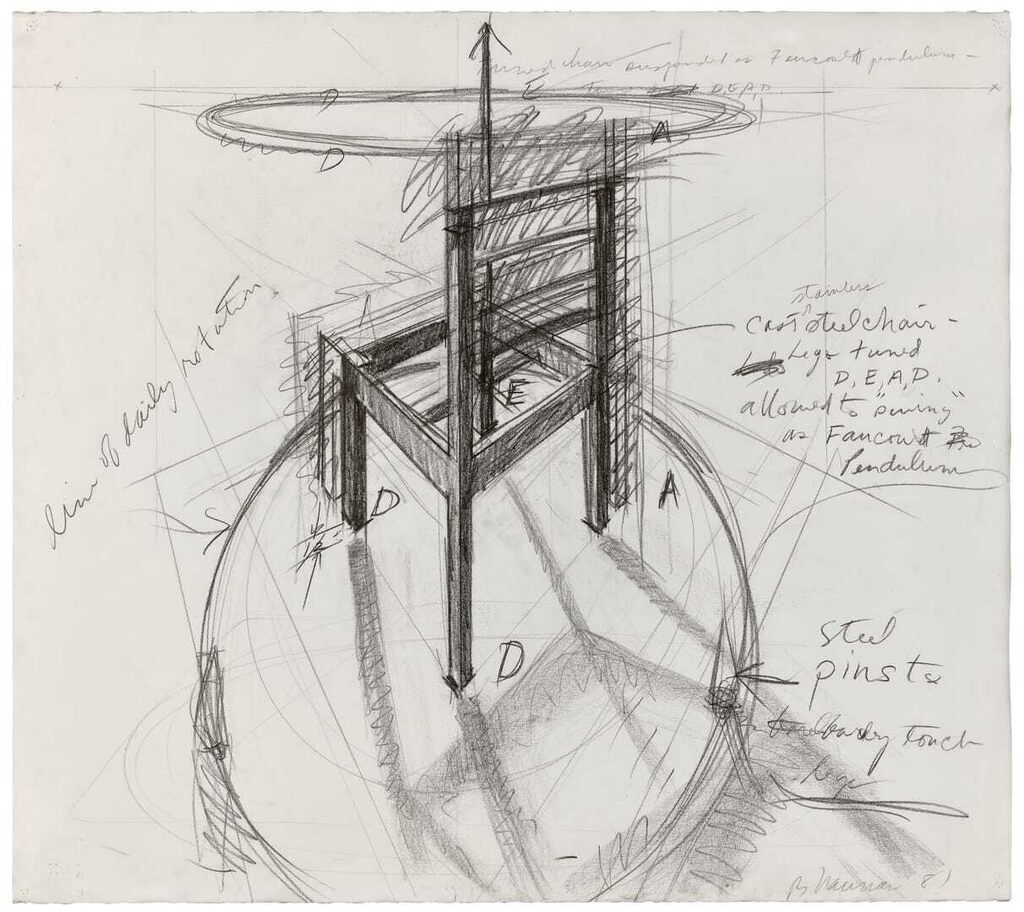 tuned chair suspended as Faucoult pendulum -
D, E, A, D
D
E
D
A
line of daily rotation
stainless
cast steel chair -
Legs tuned
D, E, A, D.
allowed to "swing"
as Faucoult
Pendulum
E
D
A
D
steel
pins to
touch
legs
B Nauman 81